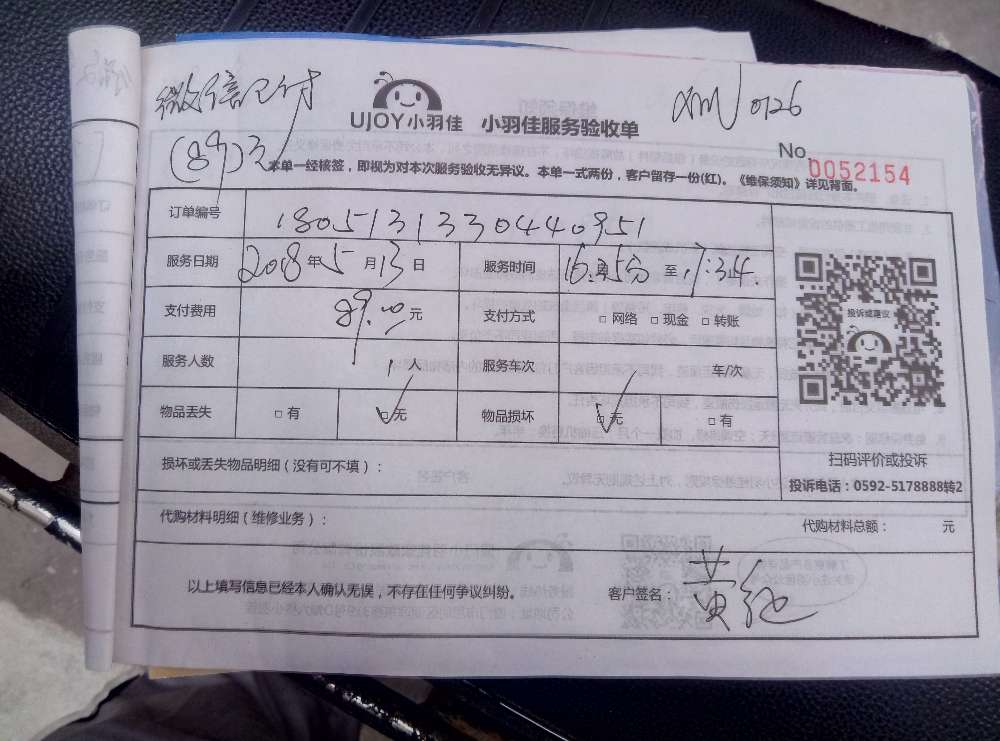 微信已付
(89)元
XMJ 0126
UJOY小羽佳 小羽佳服务验收单
No.0052154
本单一经核签，即视为对本次服务验收无异议。本单一式两份，客户留存一份(红)。《维保须知》详见背面。
订单编号 1805131330440951
服务日期 2018年5月13日 服务时间 至17:34
支付费用 89.00元 支付方式 □网络 □现金 □转账
服务人数 1人 服务车次 车/次
物品丢失 □有 ☑无 物品损坏 ☑无 □有
投诉或建议
扫码评价或投诉
损坏或丢失物品明细（没有可不填）：
投诉电话：0592-5178888转2
代购材料明细（维修业务）： 代购材料总额： 元
以上填写信息已经本人确认无误，不存在任何争议纠纷。 客户签名：黄